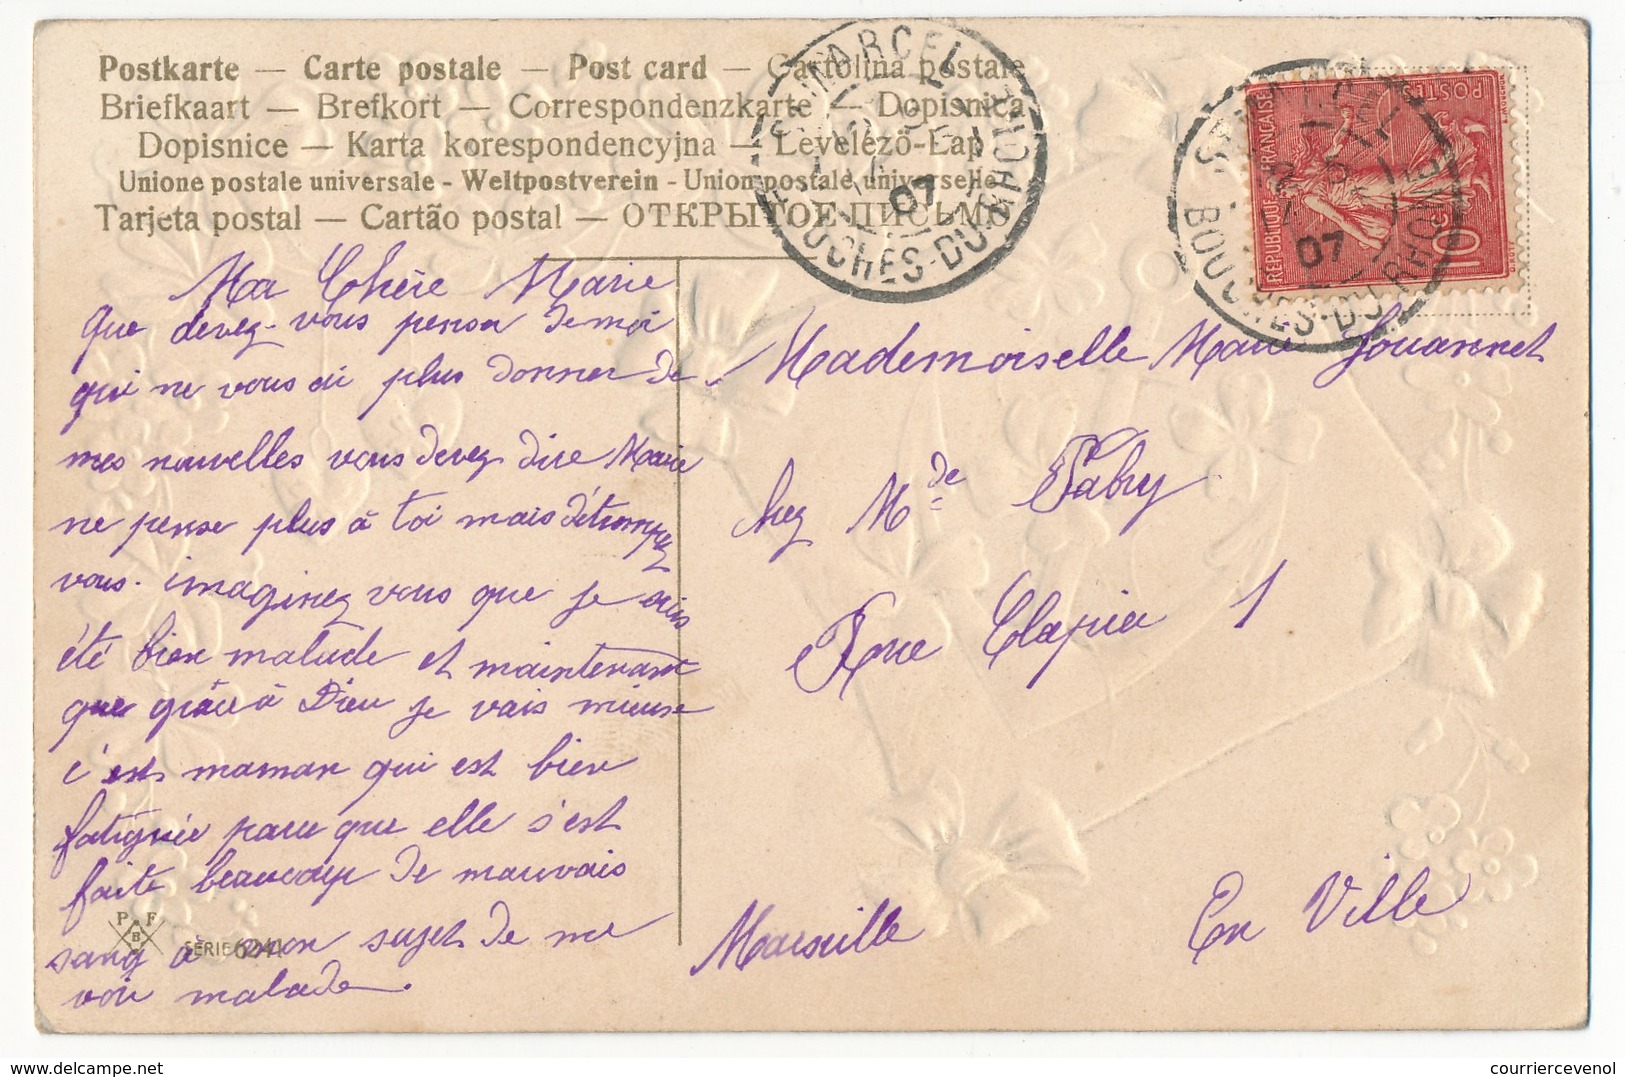 Postkarte — Carte postale — Post card — Cartolina postale
Briefkaart — Brefkort — Correspondenzkarte — Dopisnica
Dopisnice — Karta korespondencyjna — Levelező-Lap
Unione postale universale - Weltpostverein - Union postale universelle
Tarjeta postal — Cartão postal — ОТКРЫТОЕ ПИСЬМО
ST MARCEL
07
BOUCHES-DU-RHONE
ST MARCEL
07
BOUCHES-DU-RHONE
REPUBLIQUE FRANCAISE
POSTES
10
Ma Chère Marie
que devez-vous penser de moi
qui ne vous ai plus donner de
mes nouvelles vous devez dire Marie
ne pense plus à toi mais détrompez
vous. imaginez vous que je
été bien malade et maintenant
que grâce à Dieu je vais mieux
c'est maman qui est bien
fatiguée parce que elle s'est
faite beaucoup de mauvais
sang à mon sujet de me
voir malade.
P F
B
SERIE 6241
Mademoiselle Marie Jouannet
chez Mde Fabry
Rue Clapier 1
Marseille
En Ville
courriercevenol
delcampe.net